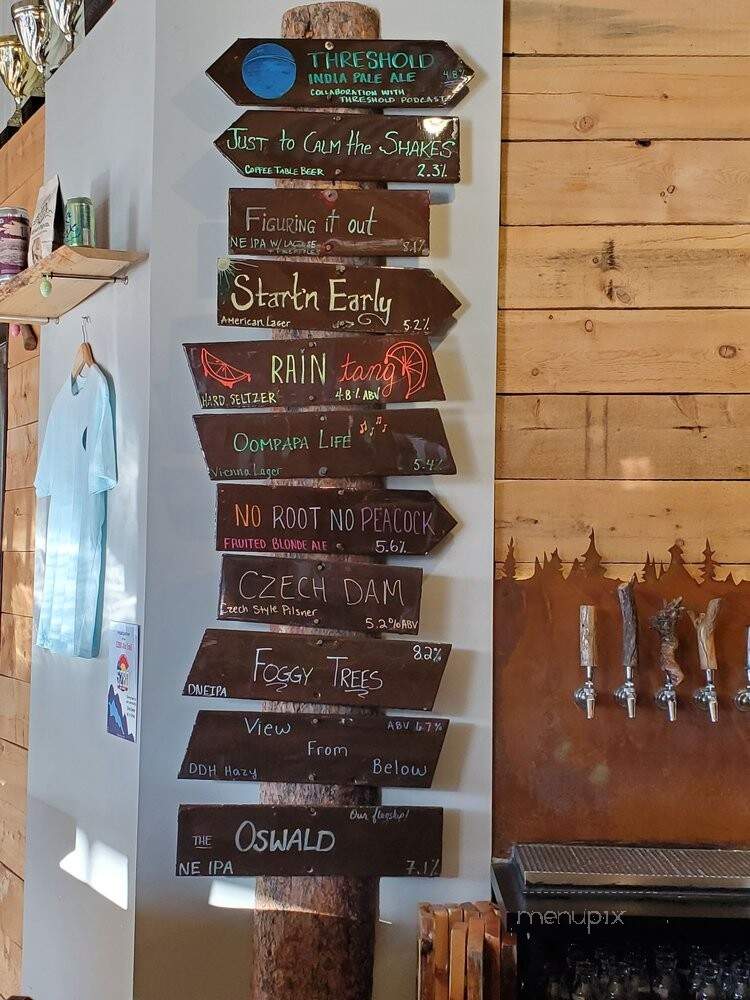 THRESHOLD
INDIA PALE ALE 4.8%
COLLABORATION WITH
THRESHOLD PODCAST
JUST to CALM the SHAKES
COFFEE TABLE BEER 2.3%
FIGURING it out
NE IPA W/ 8.1%
Start'n Early
American Lager 5.2%
RAIN tang
HARD SELTZER 4.8% ABV
OOMPAPA LIFE
Vienna Lager 5.4%
NO ROOT NO PEACOCK
FRUITED BLONDE ALE 5.6%
CZECH DAM
Czech Style Pilsner
5.2% ABV
8.2%
FOGGY TREES
DNEIPA
View ABV 6.7%
From
DDH Hazy Below
Our flagship!
THE OSWALD
NE IPA 7.1%
menupix